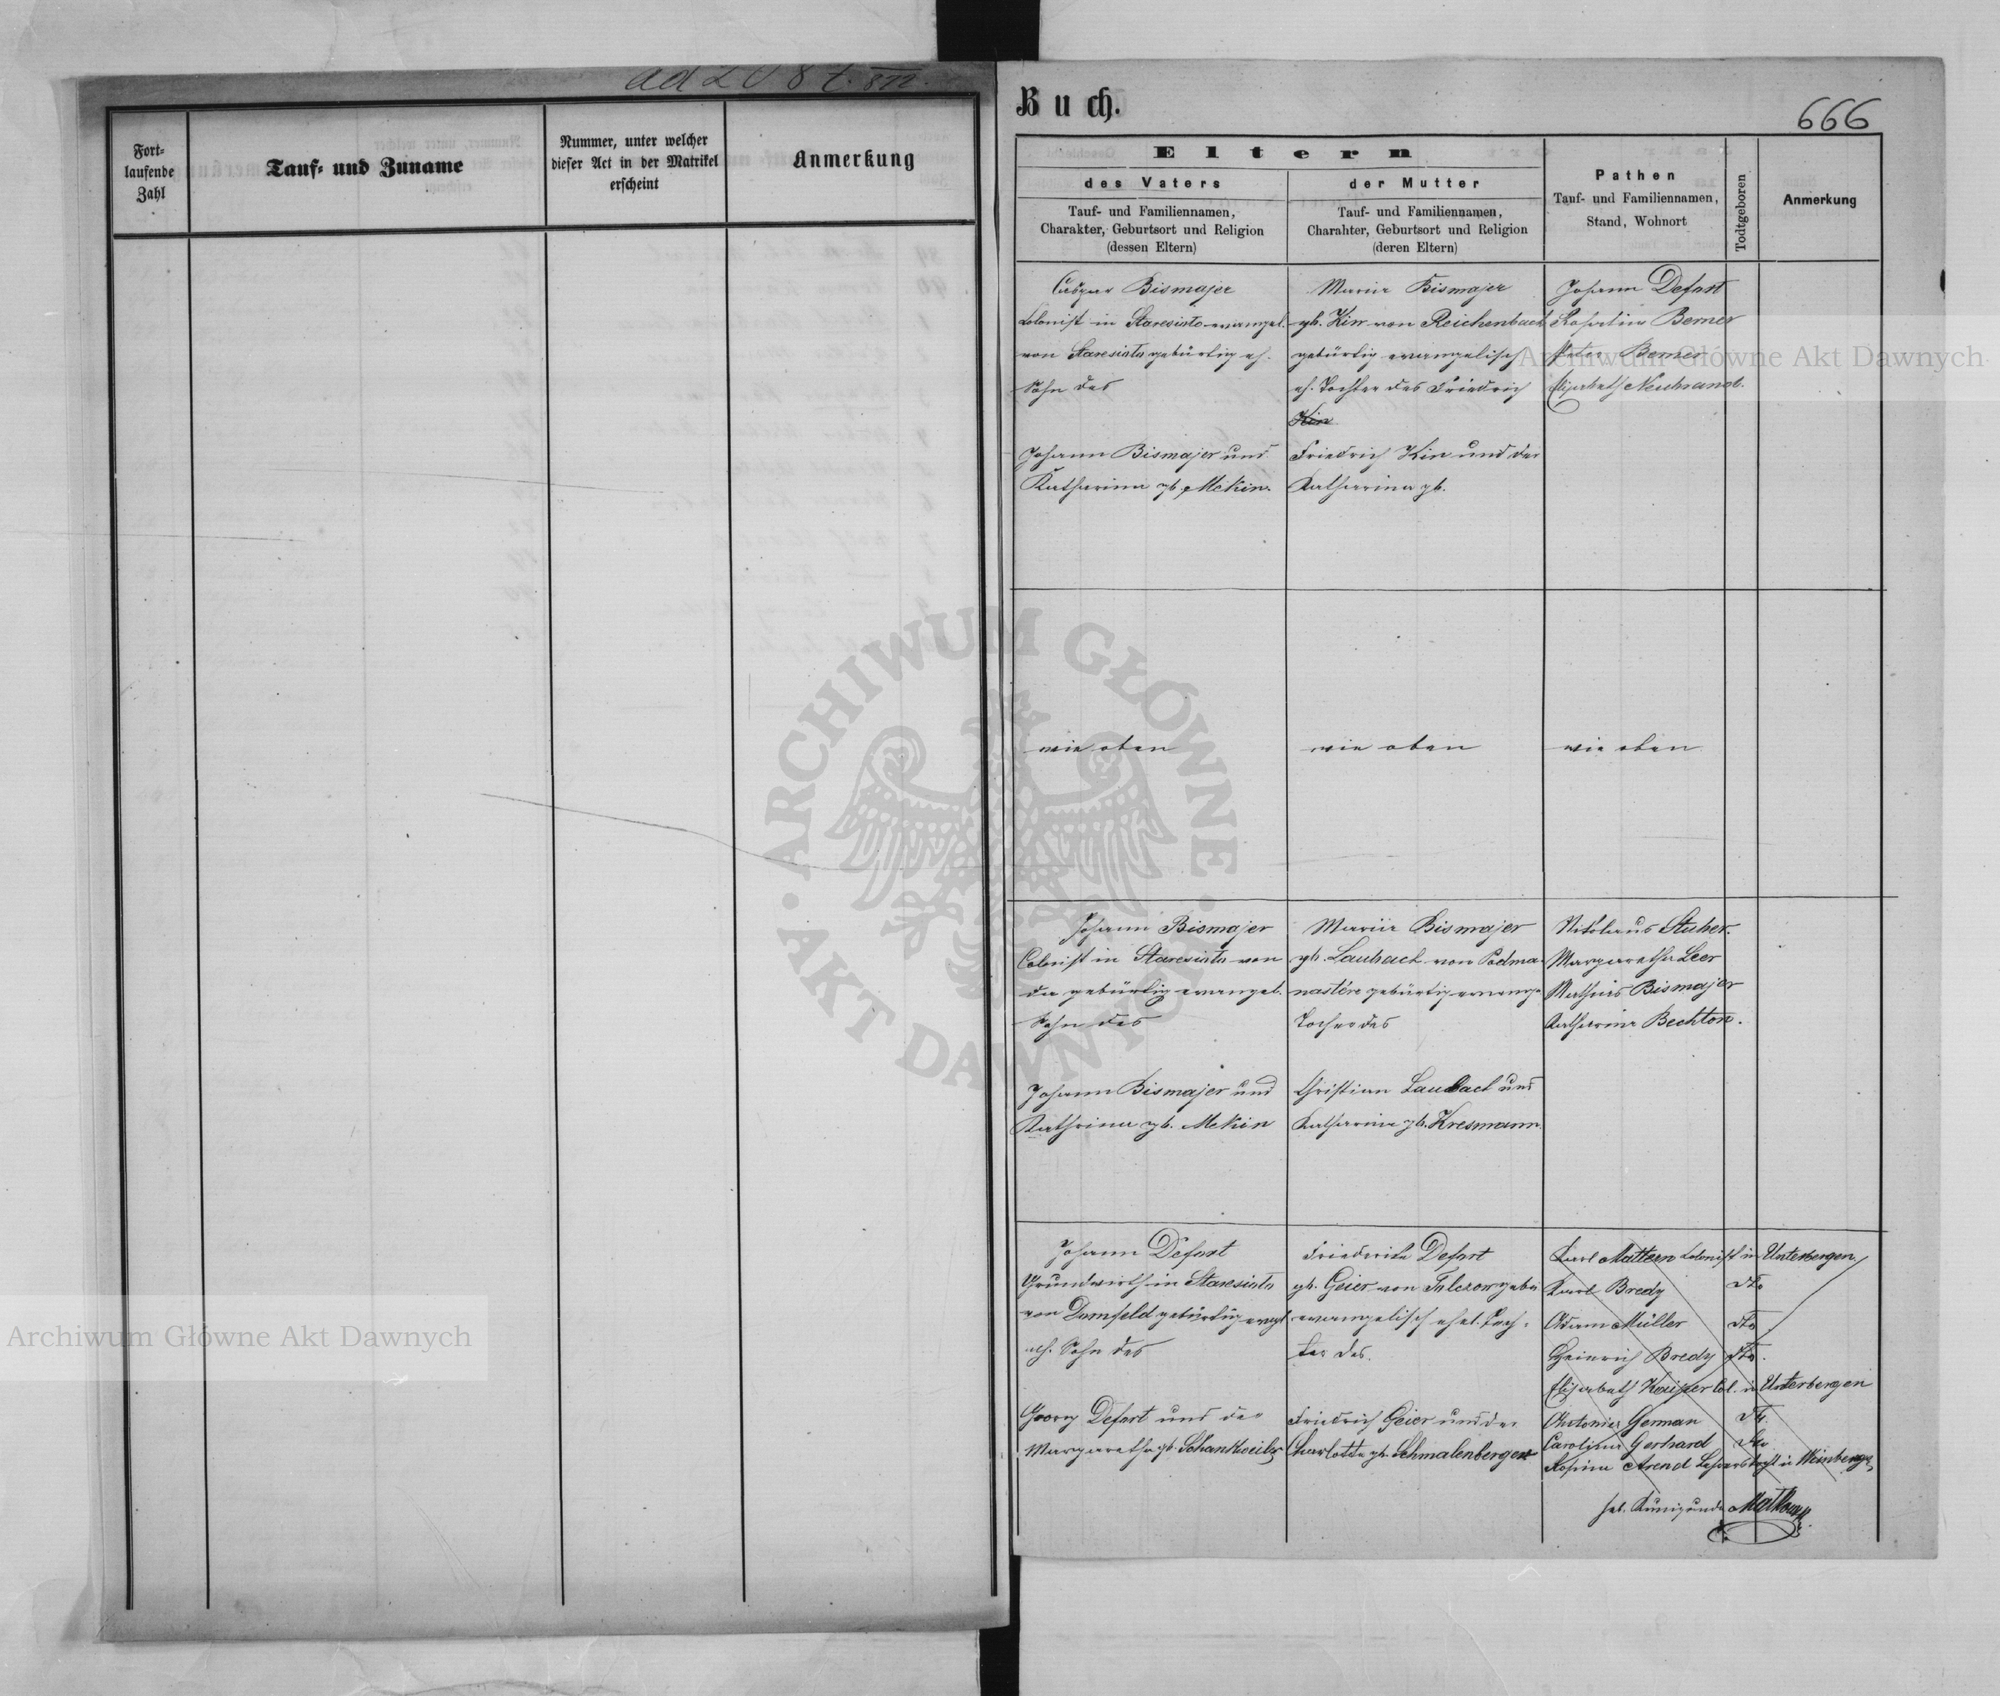 Fort-
laufende
Zahl
Tauf- und Zuname
Nummer, unter welcher
dieser Act in der Matrikel
erscheint
Anmerkung
Buch.
666
Eltern
des Vaters
Tauf- und Familiennamen,
Charakter, Geburtsort und Religion
(dessen Eltern)
der Mutter
Tauf- und Familiennamen,
Charahter, Geburtsort und Religion
(deren Eltern)
Pathen
Tauf- und Familiennamen,
Stand, Wohnort
Todtgeboren
Anmerkung
Caspar Bismajer
Colonist in Staresioto evangel.
von gebürtig eh.
Sohn des
Johann Bismajer und
Katharina gb. Mekin.
Maria Bismajer
gb. Kin von Reichenbach
gebürtig evangelisch
eh. Tochter des Friedrich
Kin
Friedrich Kin und der
Katharina gb.
Johann Defart
Berner
Peter Berner
Elisabeth Neubrand.
wie oben
wie oben
wie oben
Johann Bismajer
Colonist in von
da gebürtig evangel.
Sohn des
Johann Bismajer und
Kathrina gb. Mekin
Maria Bismajer
gb. Laubach von Podma-
nastére gebürtig
Tochter des
Christian Laubach und
Katharina gb. Kresmann.
Nikolaus Stuber.
Margaretha Leer
Mathias Bismajer
Katharina Bechton.
Johann Defart
Grundwirth in
von Dornfeld gebürtig
eh. Sohn des
Georg Defart und der
Margaretha gb.
Friederika Defart
gb. Geier von
evangelisch ehel. Toch-
ter des.
Friedrich Geier und der
Charlotte gb. Schmalenberger
Karl Mattern Colonist in Unterbergen
Karl Bredy dto
Adam Müller dto
Heinrich Bredy dto.
Elisabeth Kaiser Col. in Unterbergen
Antonia German dto.
Carolina Gerhard dto
Rosina Arend in Weinbergen
heb. Kunigunda
ARCHIWUM GŁÓWNE AKT DAWNYCH
Archiwum Główne Akt Dawnych
Archiwum Główne Akt Dawnych